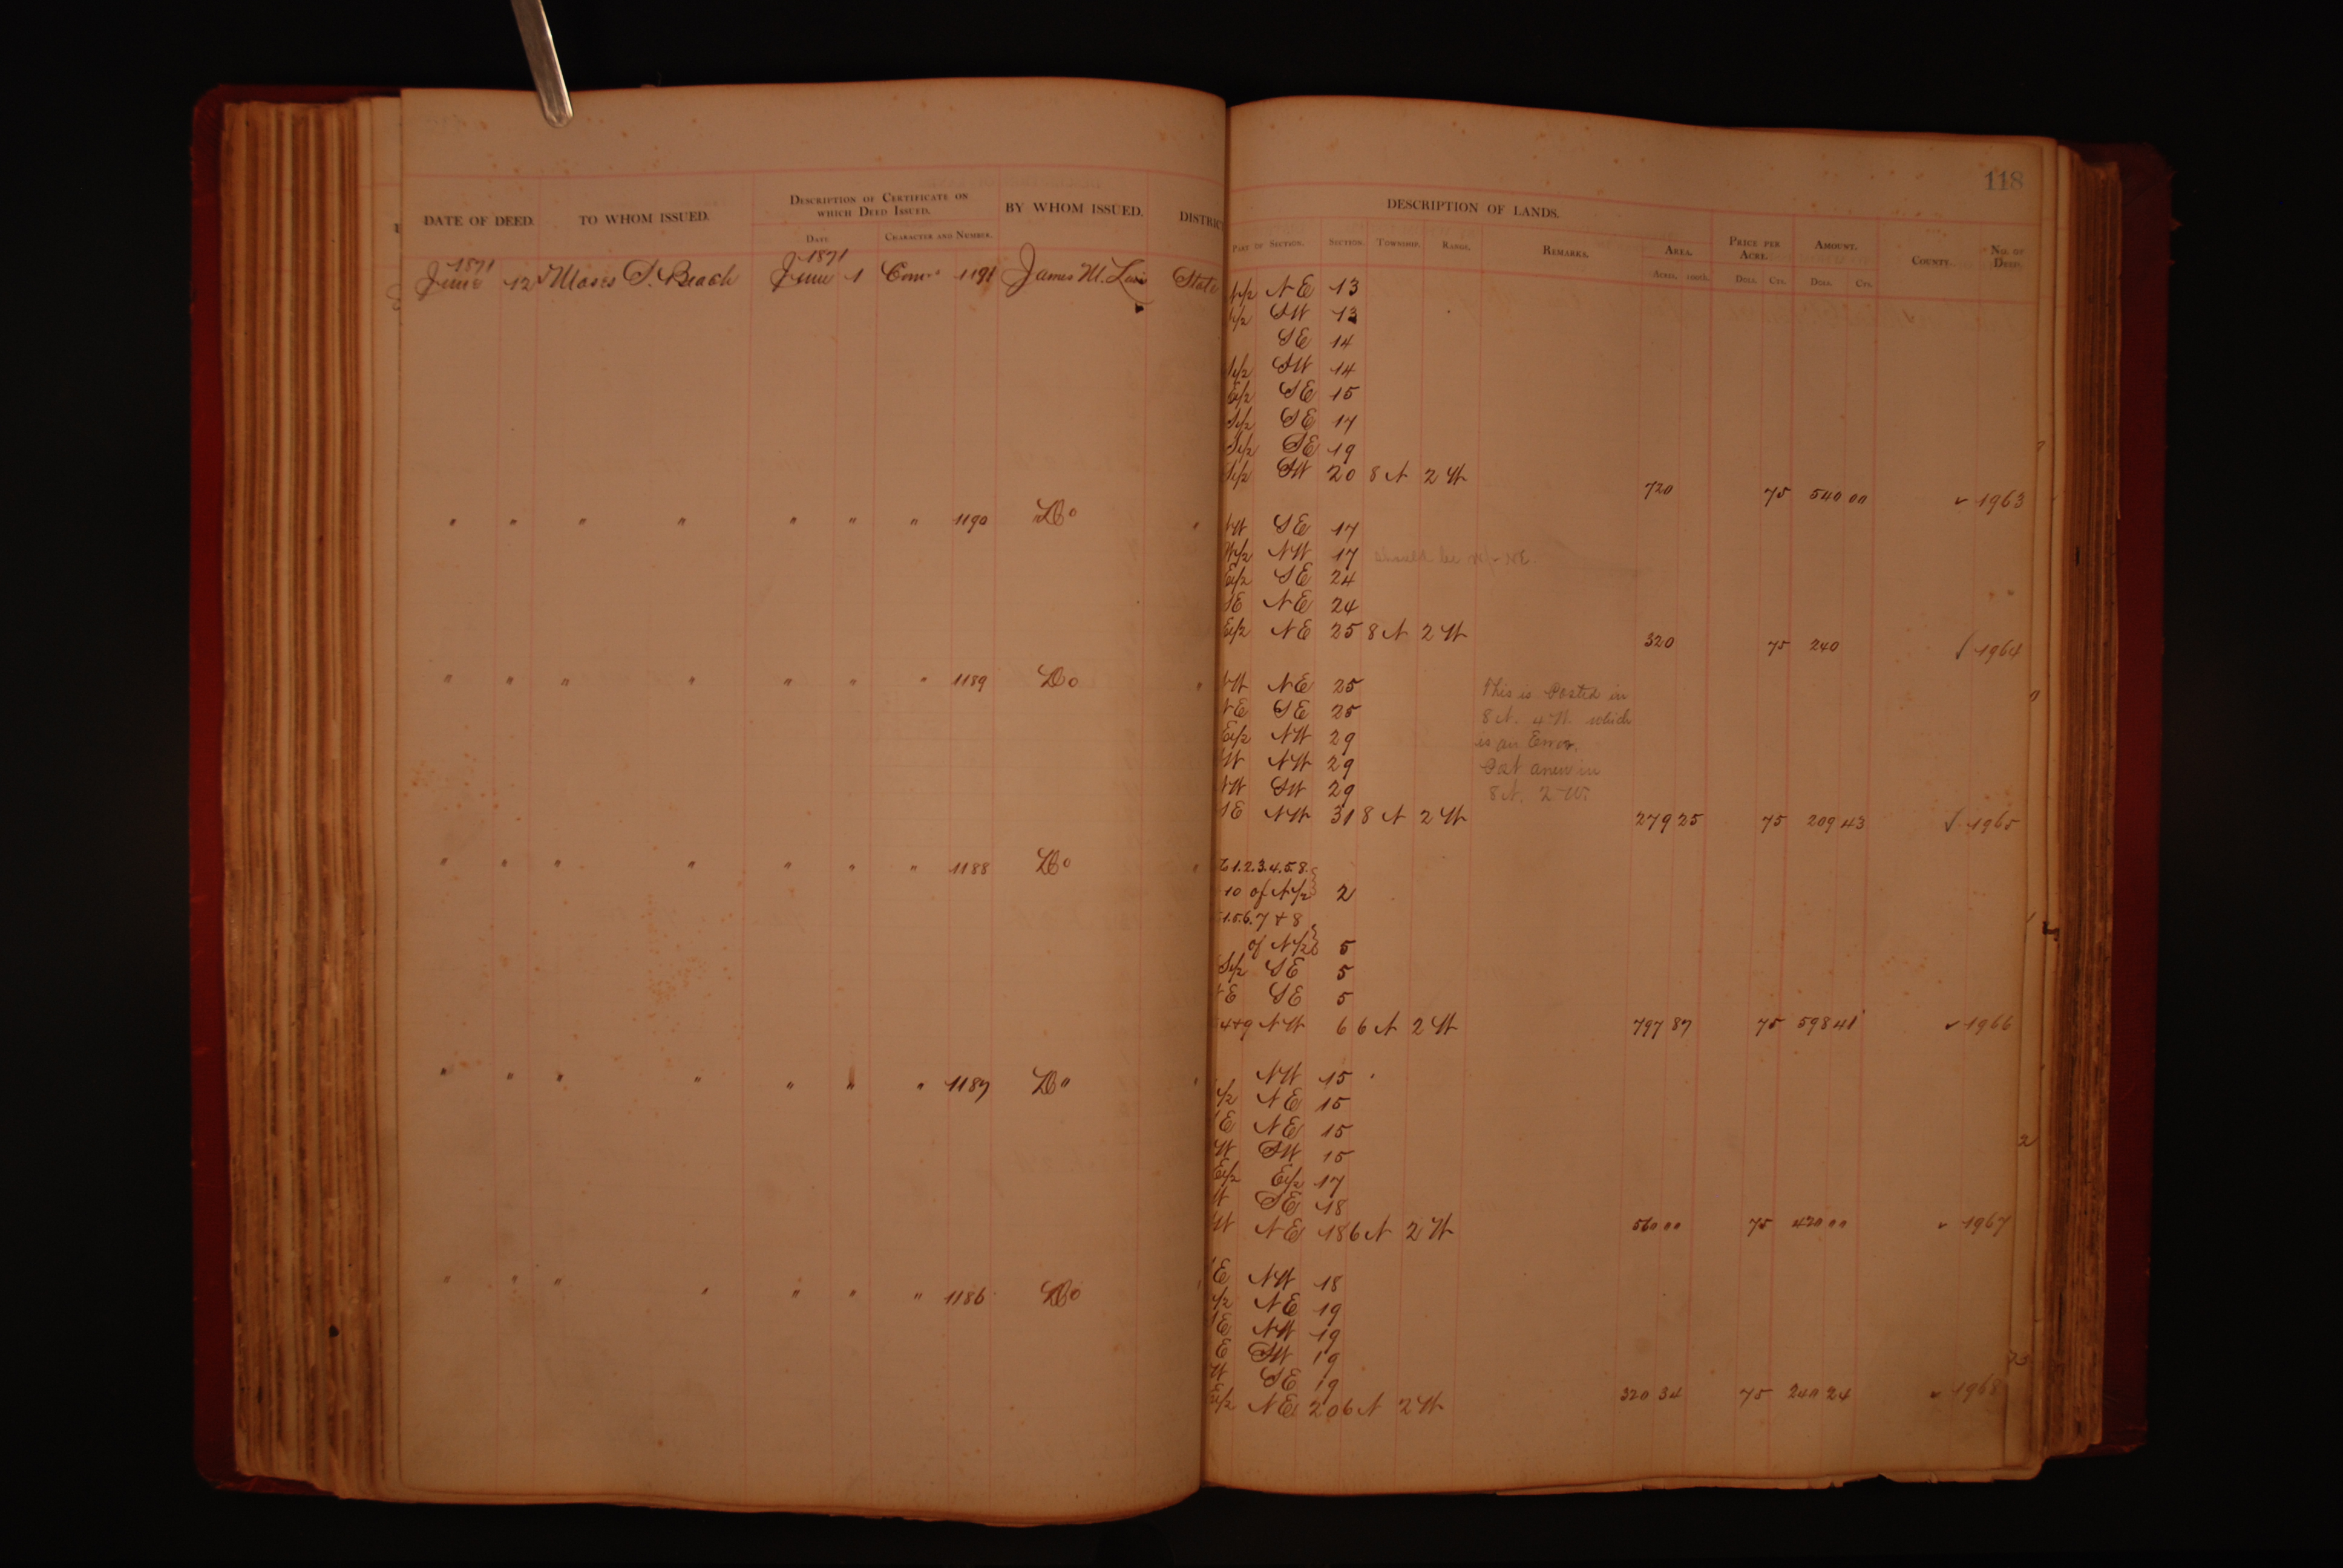 118
DATE OF DEED. TO WHOM ISSUED. DESCRIPTION OF CERTIFICATE ON WHICH DEED ISSUED. BY WHOM ISSUED. DISTRICT DESCRIPTION OF LANDS.
DATE CHARACTER AND NUMBER. PART OF SECTION. SECTION. TOWNSHIP. RANGE. REMARKS. AREA. PRICE PER ACRE. AMOUNT. COUNTY. NO. OF DEED.
ACRES. 100th. DOLL. CTS. DOLL. CTS.
1871 1871
June 12 Moses S. Beach June 1 1191 James M. State
NE 13
SW 13
SE 14
SW 14
E½ SE 15
S½ SE 17
S½ SE 19
SW 20 8 N 2 W
720 75 540 00 1963
" " " " " " " 1190 Do "
SE 17
W½ NW 17 should be
E½ SE 24
SE NE 24
E½ NE 25 8 N 2 W
320 75 240 1964
" " " " " " " 1189 Do "
NE 25 This is Posted in
SE 25 8 N. 4 W. which
E½ NW 29 is an Error.
NW 29 Post anew in
SW 29 8 N. 2 W.
SE NW 31 8 N 2 W 279 25 75 209 43 1965
" " " " " " " 1188 Do "
1.2.3.4.5.8.
10 of N½ 2
1.5.6.7 + 8
of N½ 5
S½ SE 5
SE 5
4+9 NW 6 6 N 2 W 797 87 75 598 41 1966
" " " " " " " 1187 Do "
NW 15
½ NE 15
E NE 15
W SW 15
E½ E½ 17
W SE 18
W NE 18 6 N 2 W 560 00 75 420 00 1967
" " " " " " " 1186 Do
E NW 18
½ NE 19
E NW 19
E SW 19
W SE 19
½ NE 20 6 N 2 W 320 34 75 240 24 1968